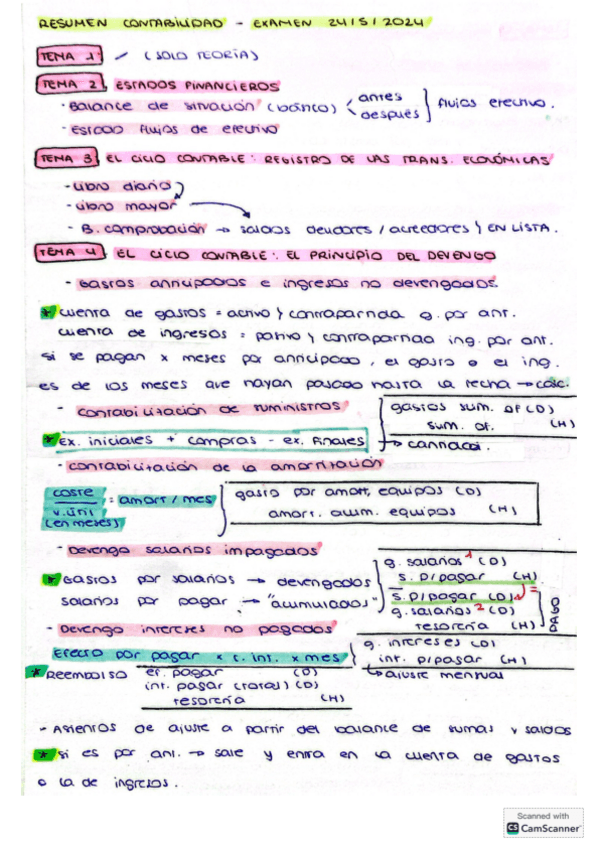 RESUMEN CONTABILIDAD - EXAMEN 24/5/2024
TEMA 1 / (SOLO TEORÍA)
TEMA 2. ESTADOS FINANCIEROS
- Balance de situación (básico) antes después flujos efectivo.
- Estado flujos de efectivo
TEMA 3 EL CICLO CONTABLE: REGISTRO DE LAS TRANS. ECONÓMICAS
- Libro diario
- Libro mayor
- B. comprobación → saldos deudores / acreedores y EN LISTA.
TEMA 4. EL CICLO CONTABLE: EL PRINCIPIO DEL DEVENGO
- Gastos anticipados e ingresos no devengados.
* cuenta de gastos = activo y contrapartida g. por ant.
cuenta de ingresos = pasivo y contrapartida ing. por ant.
si se pagan x meses por anticipado, el gasto o el ing.
es de los meses que hayan pasado hasta la fecha → calc.
- contabilización de suministros
gastos sum. of (D)
sum. of. (H)
* Ex. iniciales + compras - ex. finales → cantidad.
- contabilización de la amortización
coste / v. útil (en meses) = amort / mes
gasto por amort, equipos (D)
amort. acum. equipos (H)
- Devengo salarios impagados
* Gastos por salarios → devengados
salarios por pagar → "acumulados"
g. salarios 1 (D)
s. p/pagar (H)
s. p/pagar (D) =
g. salarios 2 (D)
tesorería (H)
PAGO
- Devengo intereses no pagados
Efecto por pagar x t. int. x mes
g. intereses (D)
int. p/pagar (H)
→ ajuste mensual
* REEMBOLSO ef. pagar (D)
int. pagar (total) (D)
tesorería (H)
- Asientos de ajuste a partir del balance de sumas y saldos
* si es por ant. → sale y entra en la cuenta de gastos
o la de ingresos.
Scanned with
CS CamScanner